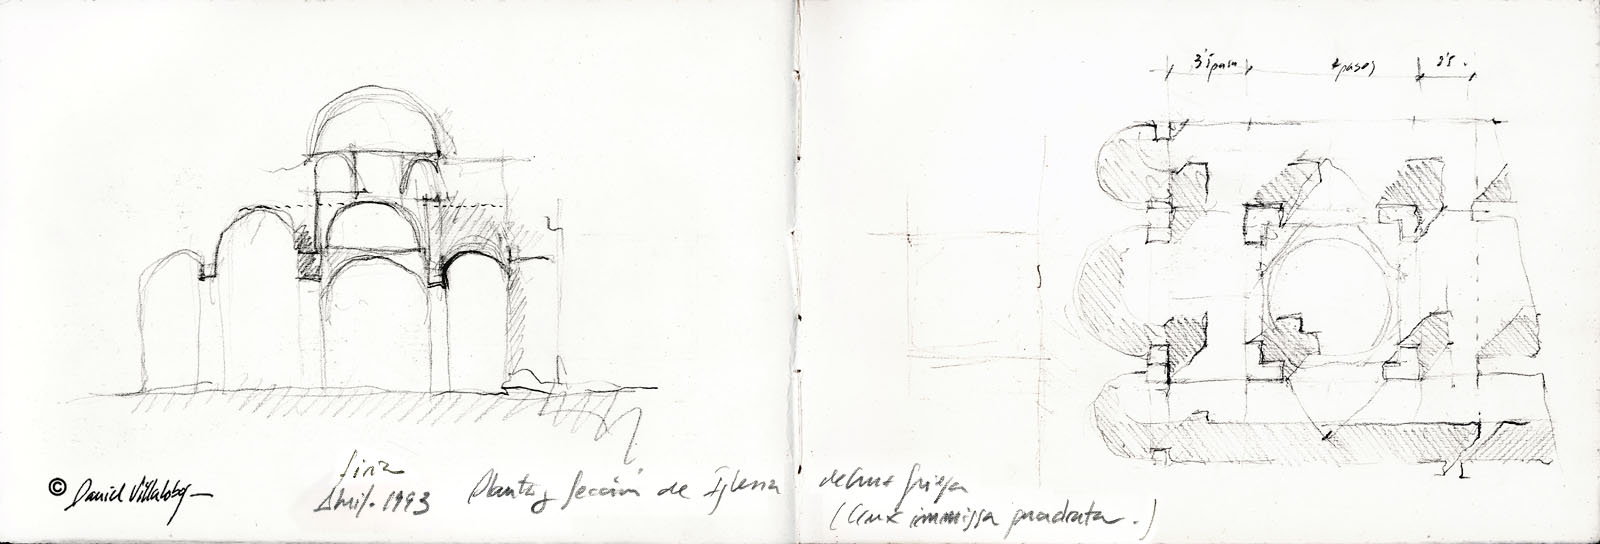 3'5 pasos 4 pasos 3'5.
© Daniel Villalobos
Siria
Abril. 1993
Planta y Sección de Iglesia de Cruz Griega
(Crux immissa quadrata.)